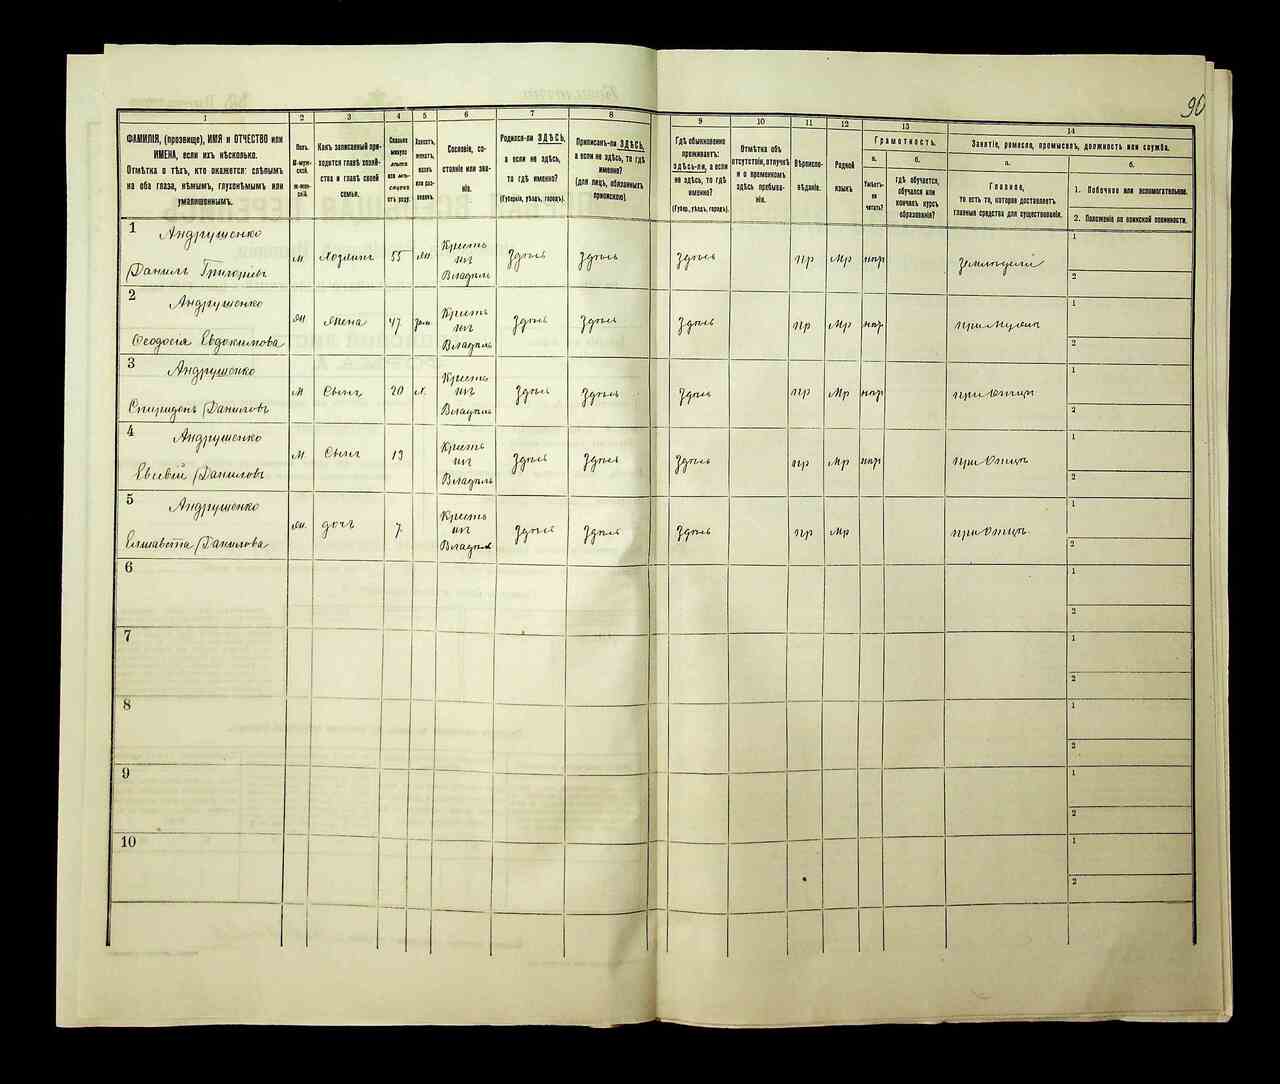 90
1 2 3 4 5 6 7 8 9 10 11 12 13 14
ФАМИЛІЯ, (прозвище), ИМЯ и ОТЧЕСТВО или
ИМЕНА, если ихъ нѣсколько.
Отмѣтка о тѣхъ, кто окажется: слѣпымъ
на оба глаза, нѣмымъ, глухонѣмымъ или
умалишеннымъ.
Полъ.
М-муж-
ской.
ж-жен-
скій.
Какъ записанный при-
ходится главѣ хозяй-
ства и главѣ своей
семьи.
Сколько
минуло
лѣтъ
или мѣ-
сяцевъ
отъ роду.
Холостъ,
женатъ,
вдовъ
или раз-
веденъ.
Сословіе, со-
стояніе или зва-
ніе.
Родился-ли ЗДѢСЬ,
а если не здѣсь,
то гдѣ именно?
(Губернія, уѣздъ, городъ).
Приписанъ-ли ЗДѢСЬ,
а если не здѣсь, то гдѣ
именно?
(для лицъ, обязанныхъ
припискою).
Гдѣ обыкновенно
проживаетъ:
здѣсь-ли, а если
не здѣсь, то гдѣ
именно?
(Губер., уѣздъ, городъ).
Отмѣтка объ
отсутствіи, отлучкѣ
и о временномъ
здѣсь пребыва-
ніи.
Вѣроиспо-
вѣданіе.
Родной
языкъ
Грамотность.
а.
Умѣетъ-
ли
читать?
б.
гдѣ обучается,
обучался или
кончилъ курсъ
образованія?
Занятіе, ремесло, промыселъ, должность или служба.
а.
Главное,
то есть то, которое доставляетъ
главныя средства для существованія.
б.
1. Побочное или вспомогательное.
2. Положеніе по воинской повинности.
1
Андрушенко
Данилъ Григорьевъ
м Хозяинъ 55 жн. Крестьянинъ Владѣль Здѣсь Здѣсь Здѣсь пр Мр нгр земледѣліе
1
2
2
Андрушенко
Феодосія Евдокимова
ж Жена 47 зам. Крестьянинъ Владѣль Здѣсь Здѣсь Здѣсь пр Мр нгр при мужѣ
1
2
3
Андрушенко
Спиридонъ Даниловъ
м Сынъ 20 х. Крестьянинъ Владѣль Здѣсь Здѣсь Здѣсь пр Мр нгр при Отцѣ
1
2
4
Андрушенко
Евсевій Даниловъ
м Сынъ 13 Крестьянинъ Владѣль Здѣсь Здѣсь Здѣсь пр Мр нгр при Отцѣ
1
2
5
Андрушенко
Елизавета Данилова
ж дочь 7 Крестьянинъ Владѣль Здѣсь Здѣсь Здѣсь пр Мр при Отцѣ
1
2
6
1
2
7
1
2
8
1
2
9
1
2
10
1
2